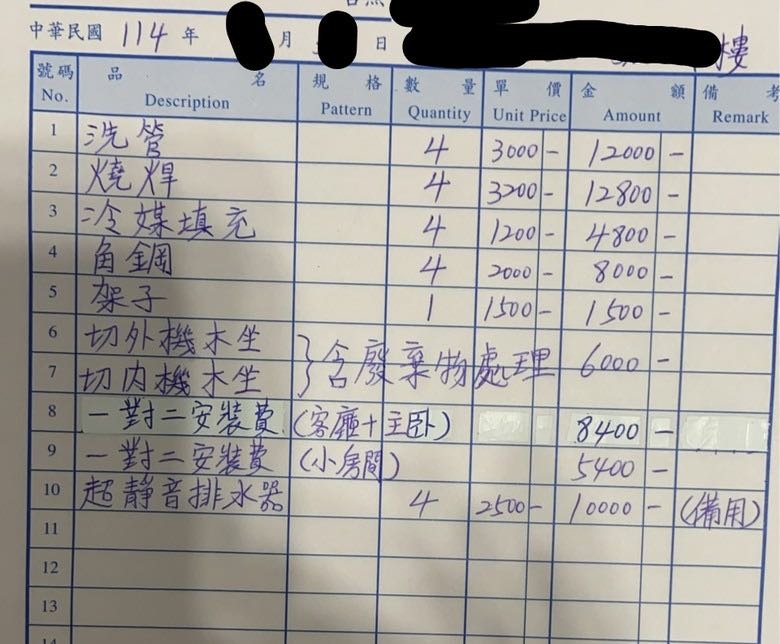 中華民國 114 年 月 日 樓
號碼 No. 品名 Description 規格 Pattern 數量 Quantity 單價 Unit Price 金額 Amount 備考 Remark
1 洗管 4 3000- 12000-
2 燒焊 4 3200- 12800-
3 冷媒填充 4 1200- 4800-
4 角鋼 4 2000- 8000-
5 架子 1 1500- 1500-
6 切外機木坐 } 含廢棄物處理 6000-
7 切內機木坐
8 一對二安裝費 (客廳+主卧) 8400-
9 一對二安裝費 (小房間) 5400-
10 超靜音排水器 4 2500- 10000- (備用)
11
12
13
14